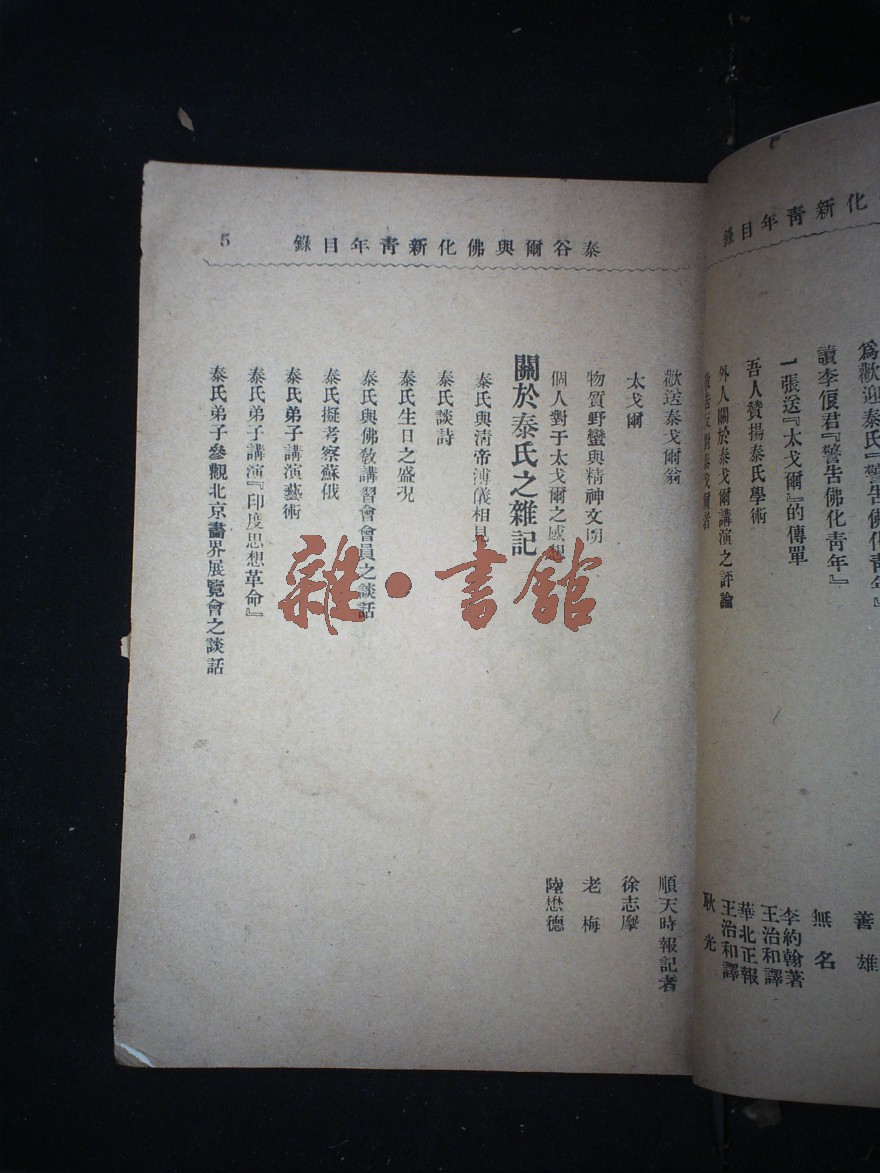 化新青年目錄
為歡迎泰氏『警告佛化青年』
善雄
讀李偃君『警告佛化青年』
無名
一張送『太戈爾』的傳單
李約翰著
王治和譯
吾人贊揚泰氏學術
華北正報
王治和譯
外人關於泰戈爾講演之評論
反對泰戈爾者
耿光
泰谷爾與佛化新青年目錄 5
歡送泰戈爾翁
順天時報記者
太戈爾
徐志摩
物質野蠻與精神文明
老梅
個人對于太戈爾之感想
陸懋德
關於泰氏之雜記
泰氏與清帝溥儀相見
泰氏談詩
泰氏生日之盛況
泰氏與佛教講習會會員之談話
泰氏擬考察蘇俄
泰氏弟子講演藝術
泰氏弟子講演『印度思想革命』
泰氏弟子參觀北京畫界展覽會之談話
雜·書館